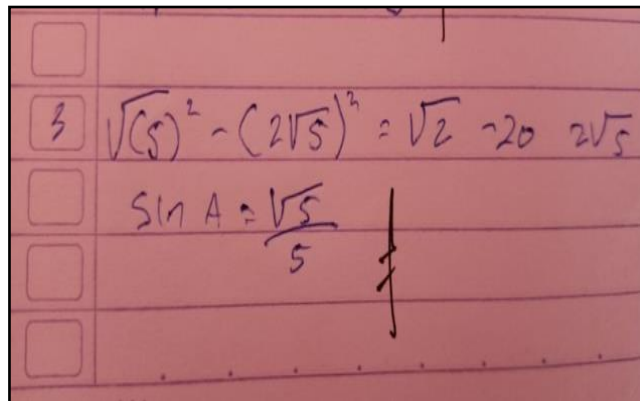 3 √(5)² - (2√5)² = √2 -20 2√5
sin A = √5/5